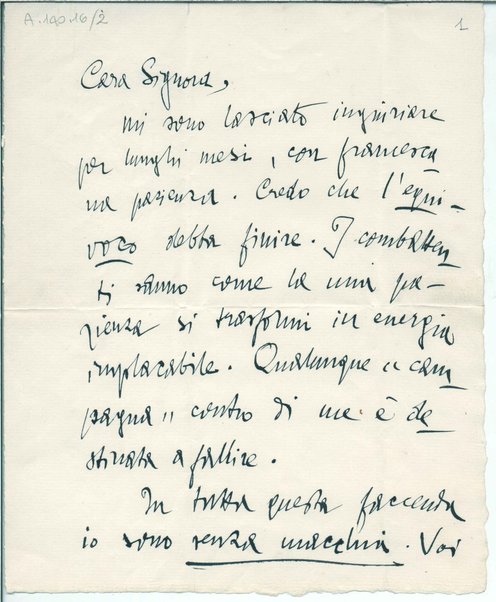 A.100.16/2
1
Cara Signora,
mi sono lasciato ingiuriare
per lunghi mesi, con francesca
na pazienza. Credo che l'equi-
voco debba finire. I combatten
ti sanno come la mia pa-
zienza si trasformi in energia
implacabile. Qualunque "cam
pagna" contro di me è de
stinata a fallire.
In tutta questa faccenda
io sono senza macchia. Voi